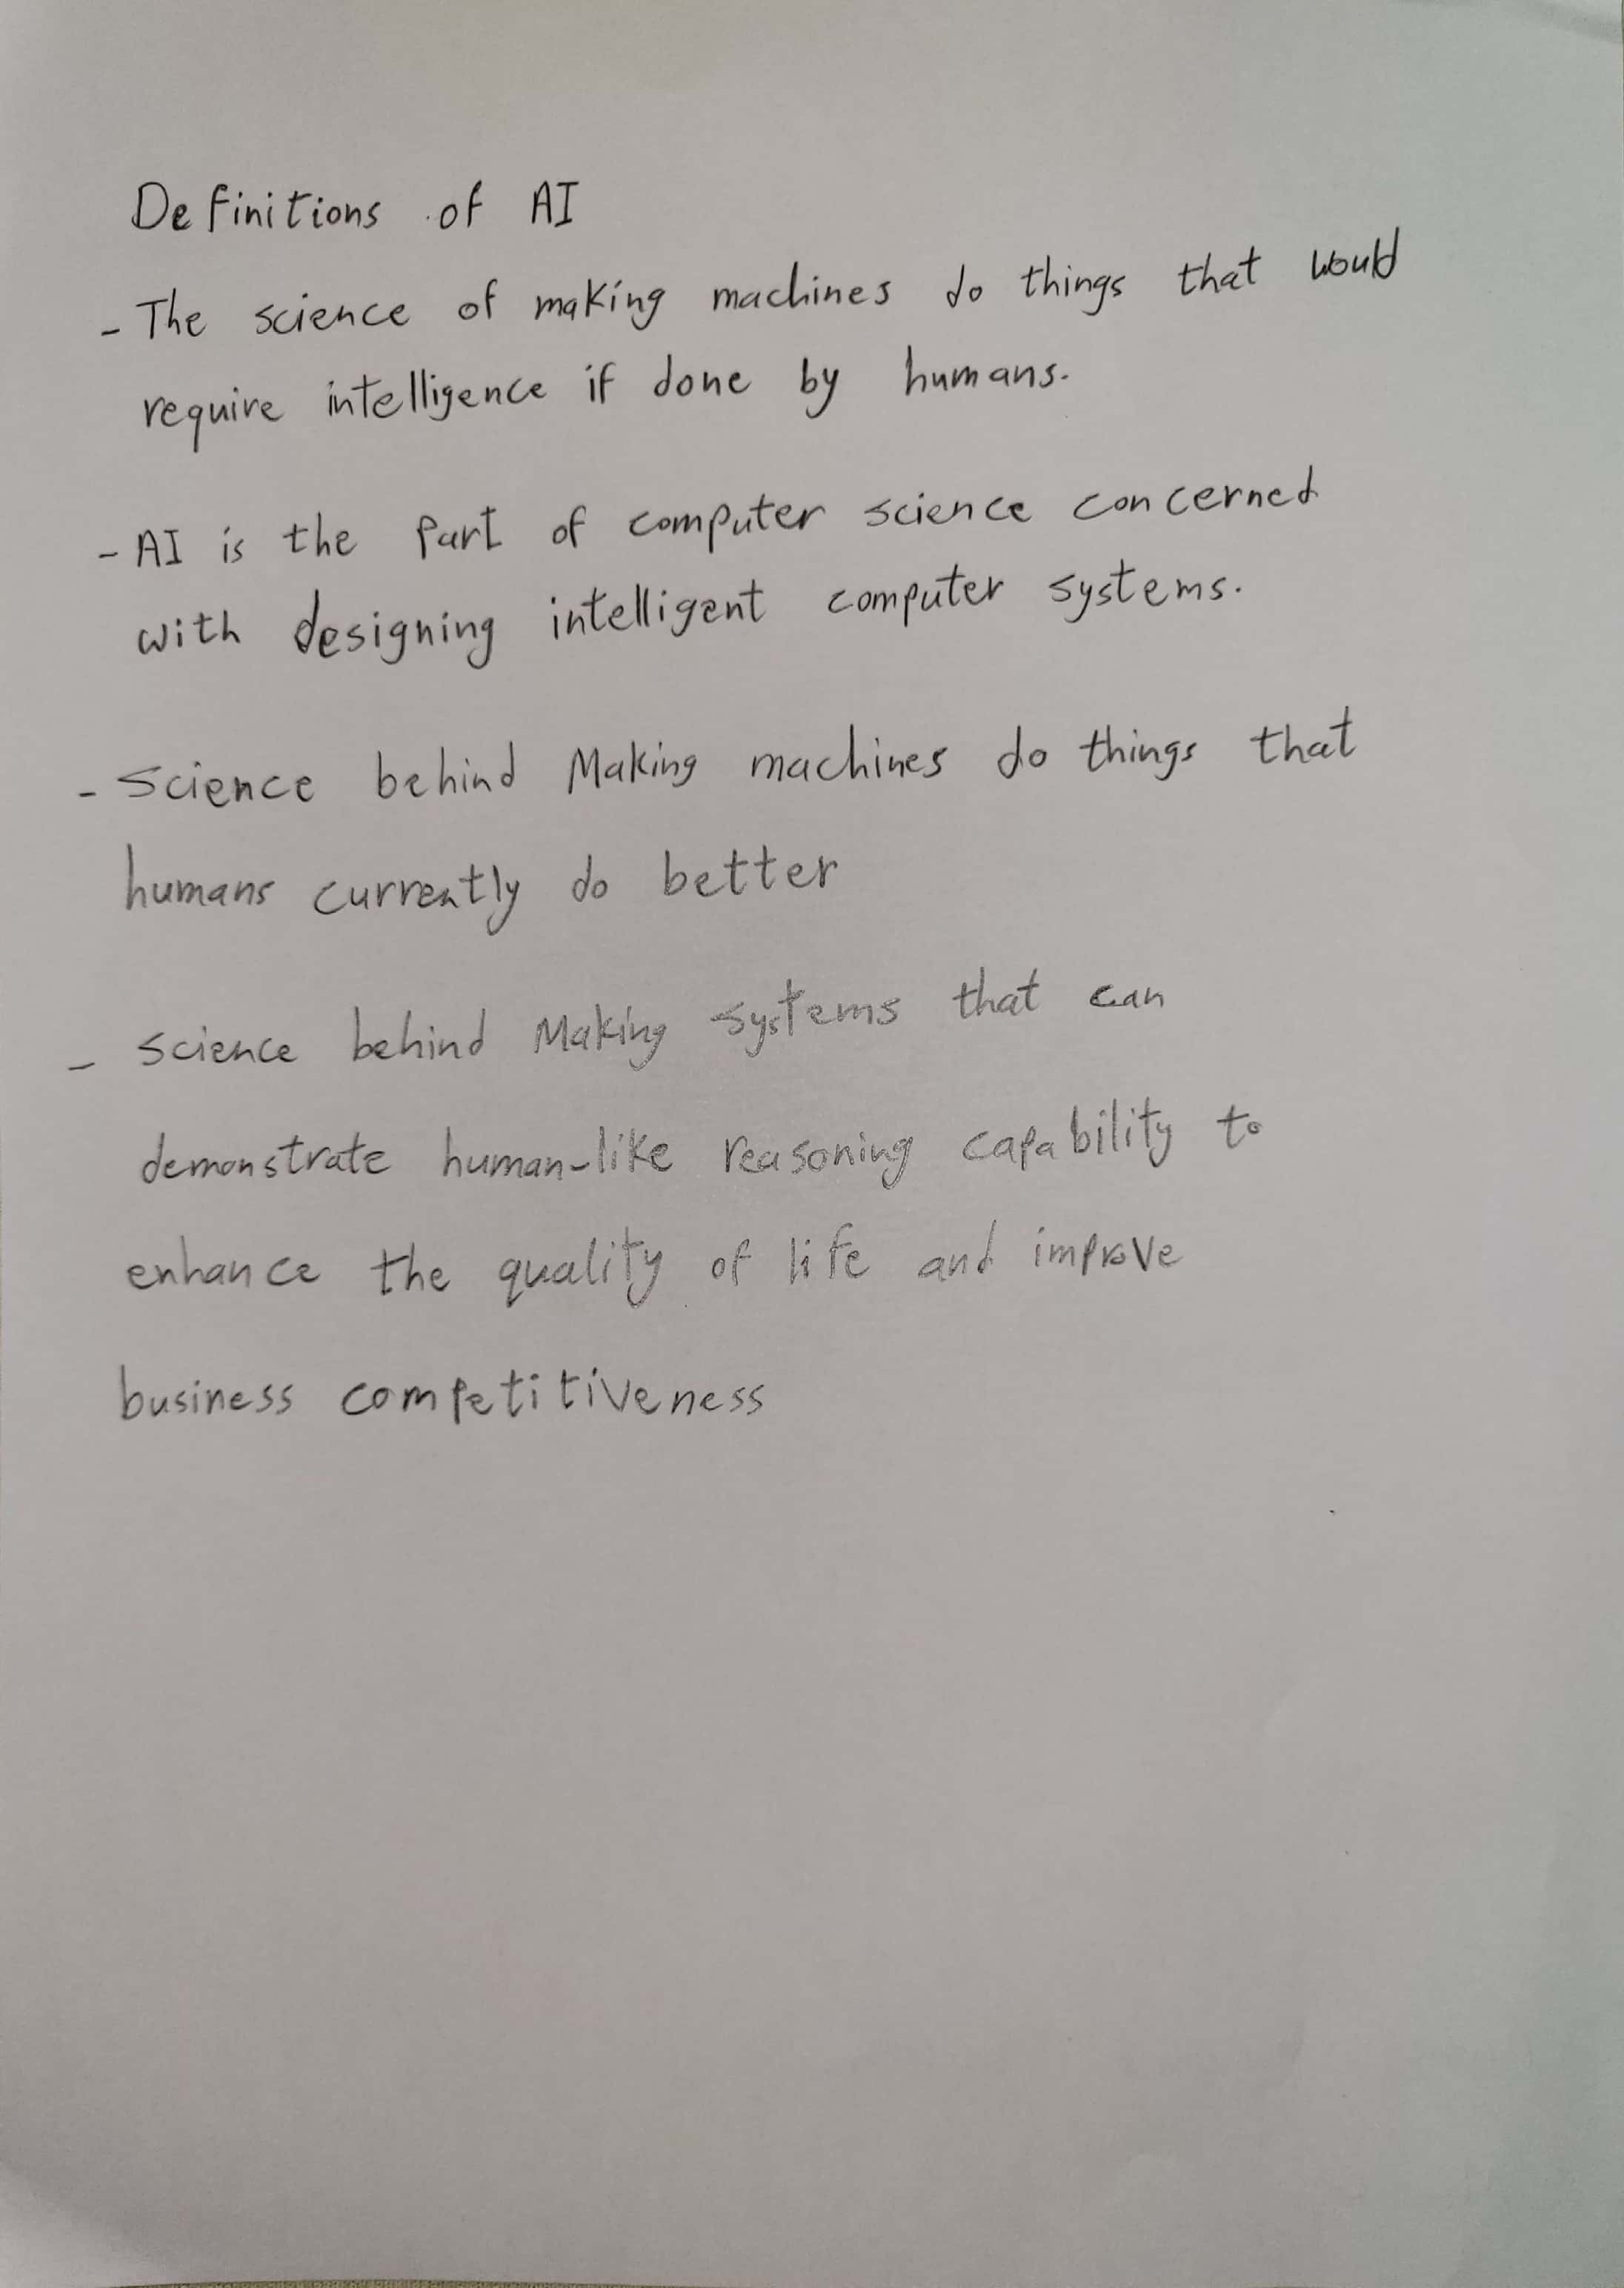 Definitions of AI
- The science of making machines do things that would
require intelligence if done by humans.
- AI is the Part of computer science concerned
with designing intelligent computer systems.
- Science behind Making machines do things that
humans currently do better
- Science behind Making systems that can
demonstrate human-like reasoning capability to
enhance the quality of life and improve
business competitiveness